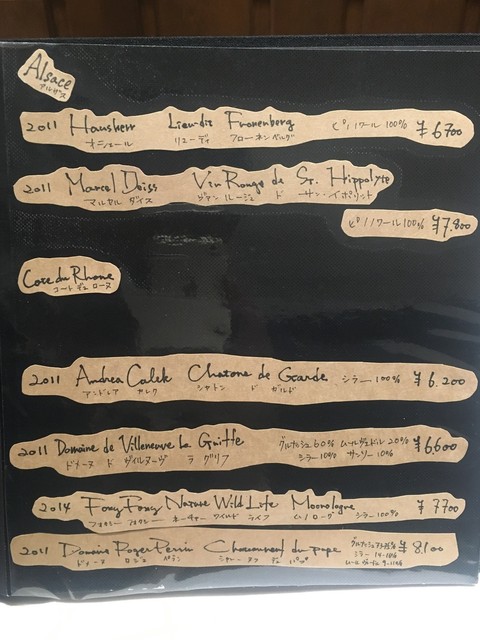 Alsace
アルザス
2011 Hausherr Lieu-dit Fronenberg ピノノワール 100% ¥6700
オシェール リューディ フローネンベルグ
2011 Marcel Deiss Vin Rouge de St. Hippolyte
マルセル ダイス ヴァン ルージュ ド サン・イポリット
ピノノワール 100% ¥7.800
Cote du Rhone
コート デュ ローヌ
2011 Andrea Calek Chatone de Garde シラー 100% ¥6.200
アンドレア カレク シャトン ド ガルド
2011 Domaine de Villeneuve La Griffe グルナッシュ 60% ムールヴェドル 20% ¥6,600
ドメーヌ ド ヴィルヌーヴ ラ グリフ シラー 10% サンソー 10%
2014 Foxy Foxy Nature Wild Life Monologue ¥7700
フォクシー フォクシー ネーチャー ワイルド ライフ モノローグ シラー 100%
2011 Domaine Roger Perrin Chateauneuf du pape グルナッシュ ¥8,100
ドメーヌ ロジェ ペラン シャトー ヌフ デュ パプ シラー